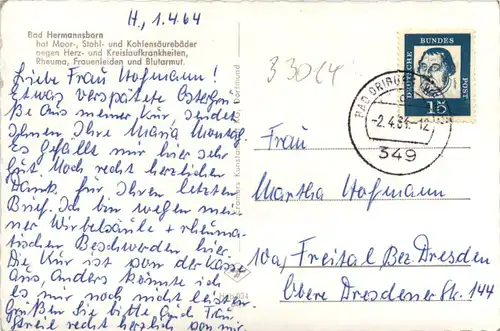 H., 1.4.64
Bad Hermannsborn
hat Moor-, Stahl- und Kohlensäurebäder
gegen Herz- und Kreislaufkrankheiten,
Rheuma, Frauenleiden und Blutarmut.
Liebe Frau Hofmann!
Etwas verspätete Ostergrü-
ße aus meiner Kur, sendet
Ihnen Ihre Maria Montag.
Es gefällt mir hier sehr
gut. Noch recht herzlichen
Dank für Ihren letzten
Brief. Ich bin wegen mei-
ner Wirbelsäule + rheuma-
tischen Beschwerden hier.
Die Kur ist von der Kasse
aus, anders könnte ich
es mir noch nicht leisten.
Grüßen Sie bitte auch Frau
recht herzlich von mir.
Cramers Kunst Dortmund
33014
DEUTSCHE BUNDES POST
15
BAD DRIBURG
-2.4.64.-12
349
Frau
Martha Hofmann
10a, Freital Bez. Dresden
Obere Dresdener Str. 144